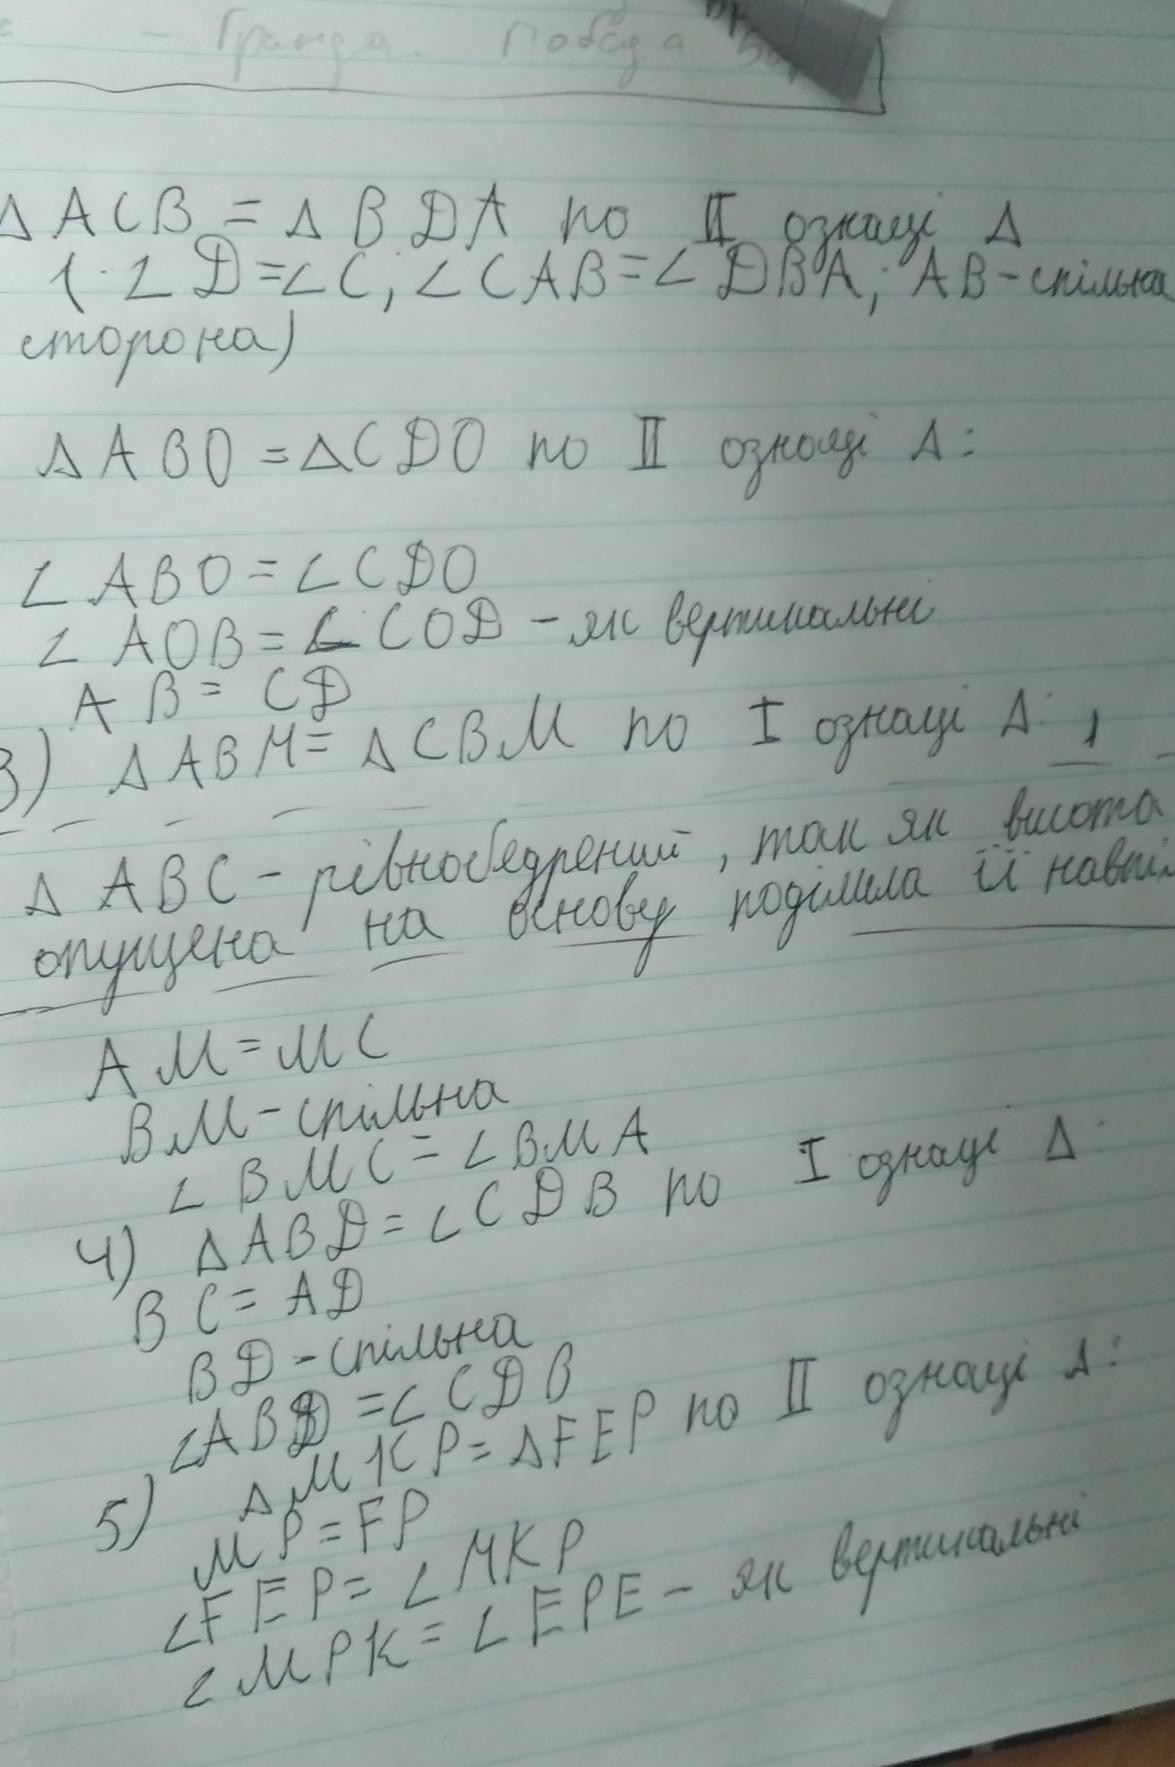 - Гранда. Победа
Δ ACB = Δ BDA по II ознаці Δ
(∠D=∠C; ∠CAB=∠DBA; AB-спільна
сторона)
Δ ABO = ΔCDO по II ознаці Δ:
∠ABO=∠CDO
∠AOB=∠COD - як вертикальні
AB = CD
3) ΔABM= ΔCBM по I ознаці Δ:
Δ ABC - рівнобедрений, так як висота
опущена на основу поділила її навпіл
AM=MC
BM-спільна
∠BMC=∠BMA
4) ΔABD=∠CDB по I ознаці Δ:
BC=AD
BD-спільна
∠ABD=∠CDB
5) ΔMKP=ΔFEP по II ознаці Δ:
MP=FP
∠FEP=∠MKP
∠MPK=∠EPE - як вертикальні